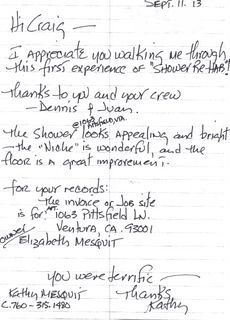 SEPT. 11. 13
Hi Craig —
I appreciate you walking me through
this first experience of "SHOWER RE-HAB"!
Thanks to you and your crew
— Dennis & Juan.
@1063 Pittsfield, VTA.
the Shower looks appealing and bright
— the "Niche" is wonderful, and the
floor is a great improvement.
for your records:
The invoice of JOB site
is for: 1063 Pittsfield LN.
Ventura, CA. 93001
owner
Elizabeth Mesquit
You were terrific —
Thanks
Kathy Mesquit
Kathy
C. 760-315-1480